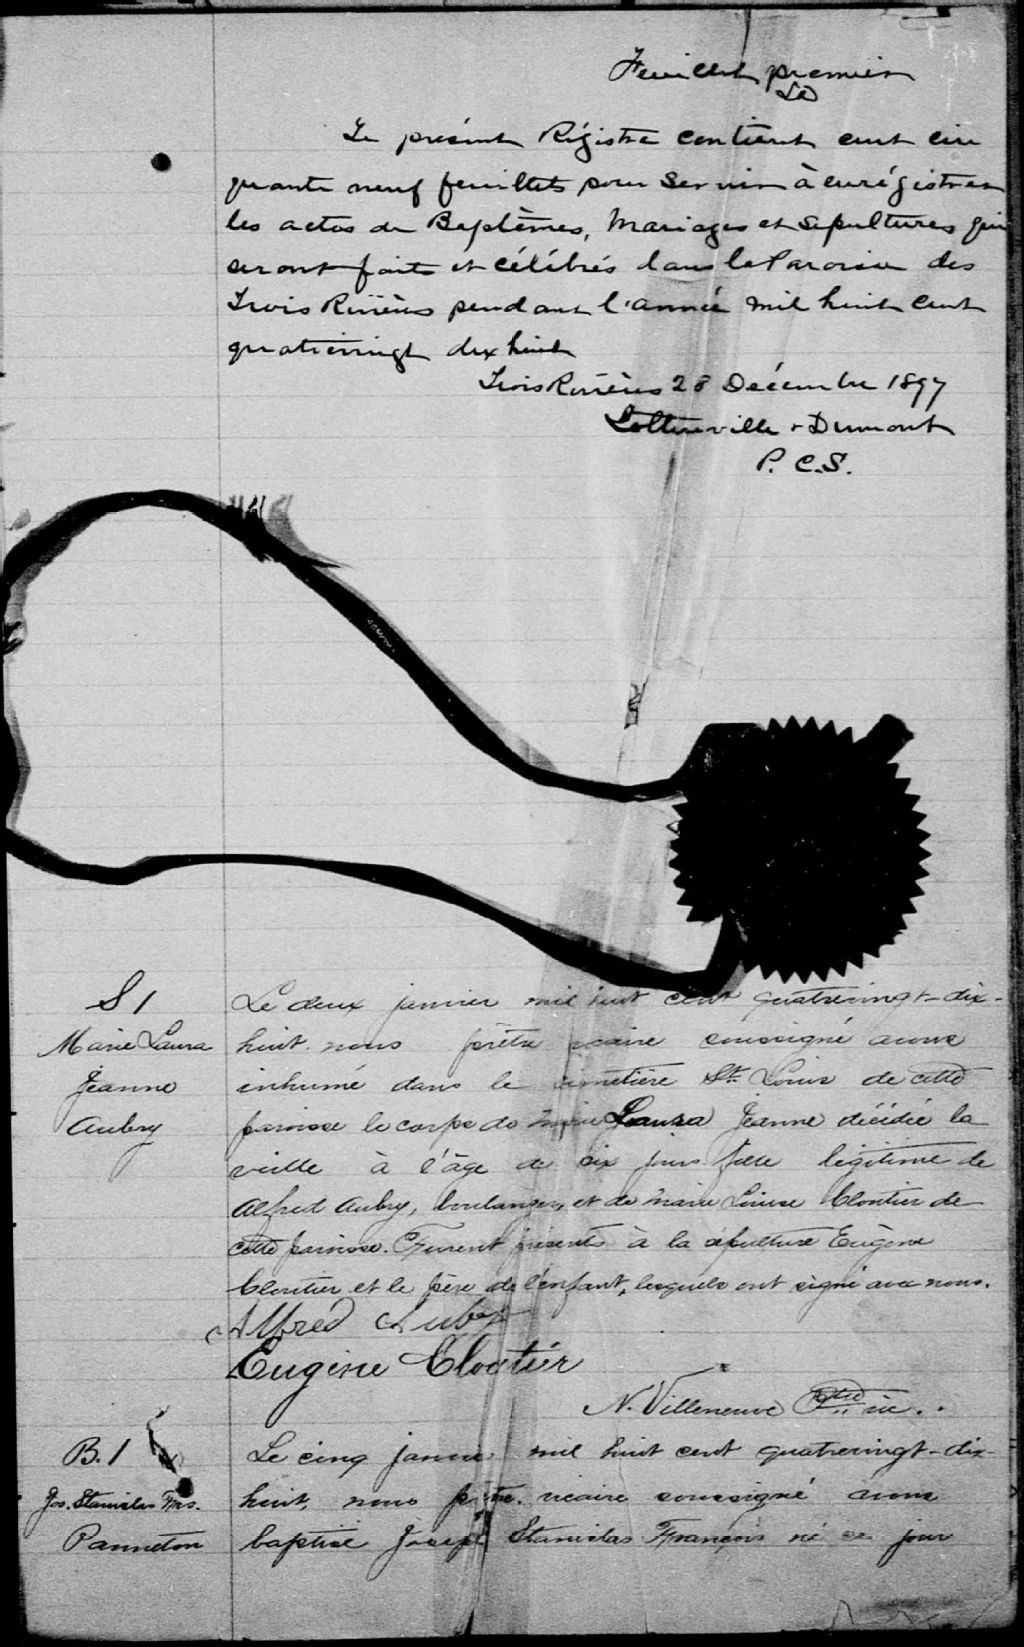 Feuillet premier
LD
Le présent Régistre contient cent cin
quante neuf feuillets pour servir à enrégistrer
les actes de Baptêmes, Mariages et Sépultures qui
seront faits et célébrés dans la Paroisse des
Trois Rivières pendant l'année mil huit cent
quatrevingt dix huit
Trois Rivières 28 Décembre 1897
Lottinville & Dumont
P. C. S.
S 1
Marie Laura
Jeanne
Aubry
Le deux janvier mil huit cent quatrevingt-dix-
huit nous prêtre vicaire soussigné avons
inhumé dans le cimetière St. Louis de cette
paroisse le corps de Marie Laura Jeanne décédée la
veille à l'âge de six jours fille légitime de
Alfred Aubry, boulanger, et de Marie Louise Cloutier de
cette paroisse. Furent présents à la sépulture Eugène
Cloutier et le père de l'enfant, lesquels ont signé avec nous.
Alfred Aubry
Eugène Cloutier
N. Villeneuve Ptre vic.
B. 1
Jos. Stanislas Frs.
Panneton
Le cinq janvier mil huit cent quatrevingt-dix-
huit, nous ptre. vicaire soussigné avons
baptisé Joseph Stanislas François né ce jour